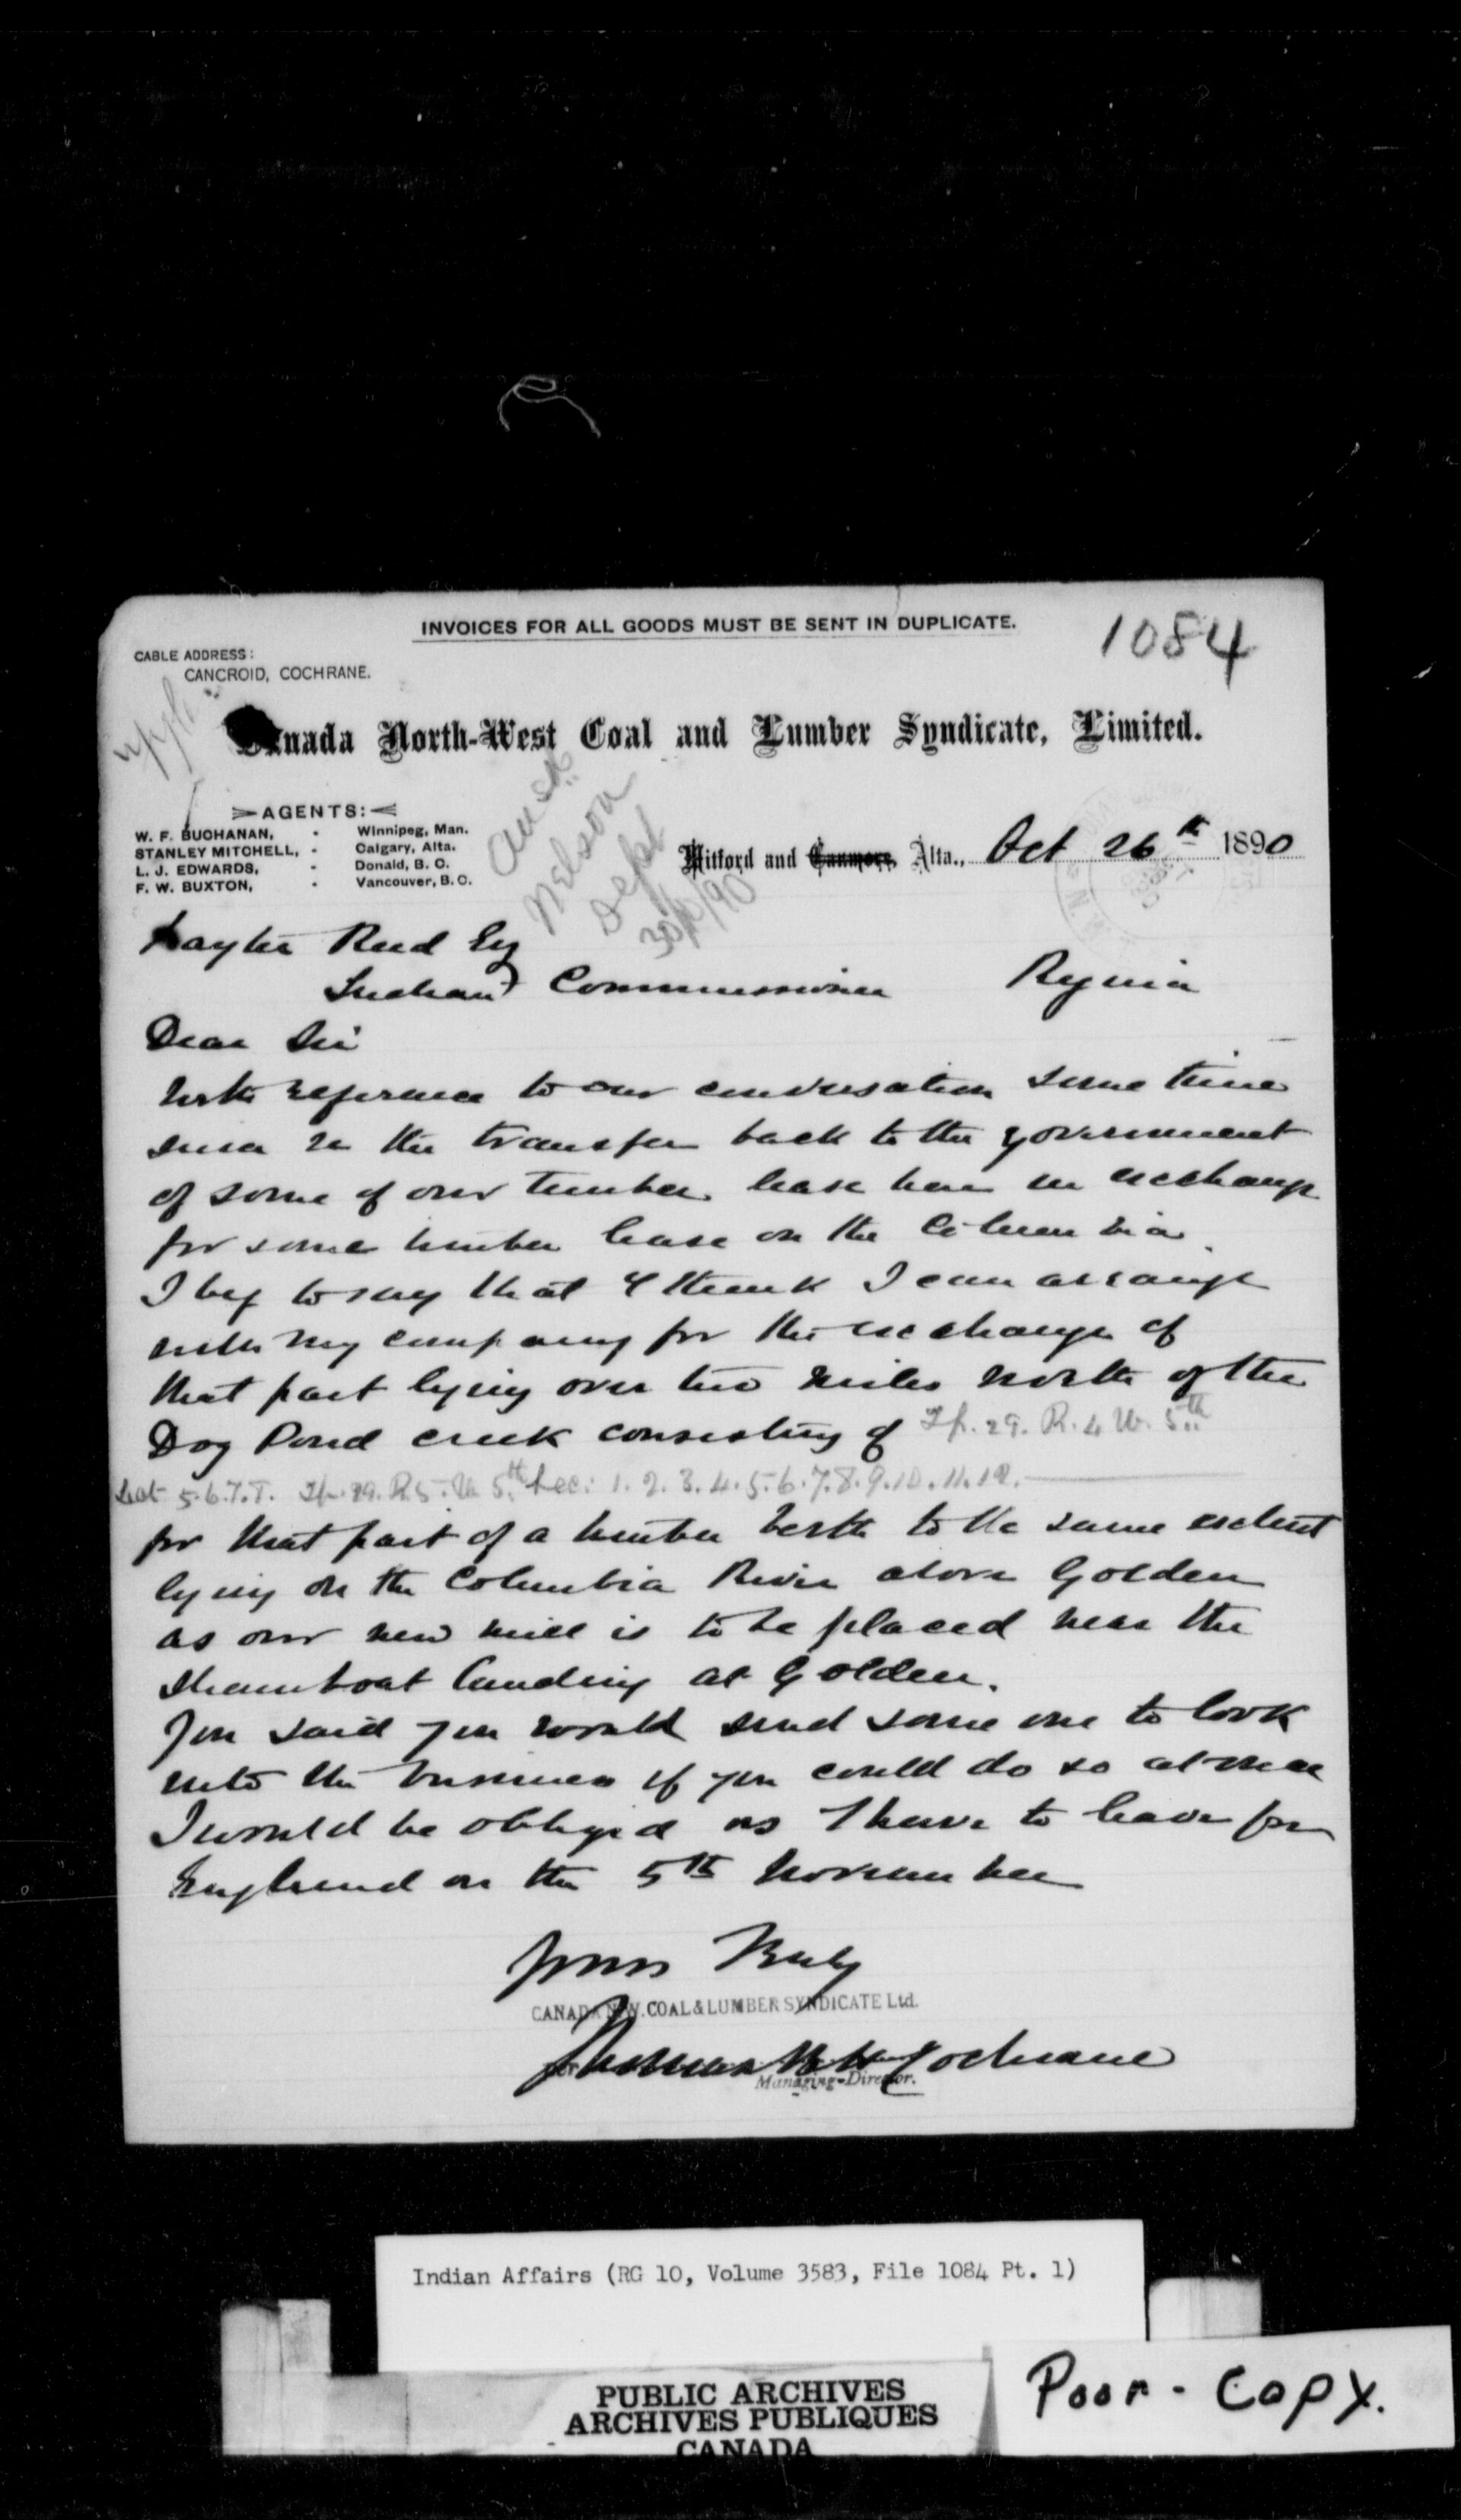 INVOICES FOR ALL GOODS MUST BE SENT IN DUPLICATE.
1084
CABLE ADDRESS:
CANCROID, COCHRANE.
Canada North-West Coal and Lumber Syndicate, Limited.
AGENTS:
W. F. BUCHANAN, - Winnipeg, Man.
STANLEY MITCHELL, - Calgary, Alta.
L. J. EDWARDS, - Donald, B. C.
F. W. BUXTON, - Vancouver, B. C.
Nelson
Dept
30/10/90
Mitford and Canmore, Alta., Oct 26th 1890
Hayter Reed Esq
Indian Commissioner Regina
Dear Sir
With reference to our conversation some time
since re the transfer back to the government
of some of our timber lease here in exchange
for some timber lease on the Columbia
I beg to say that I think I can arrange
with my company for the exchange of
that part lying over two miles north of the
Dog Pond creek consisting of Tp. 29. R. 4 W. 5th
Sect 5.6.7.8. Tp. 29. R. 5. W 5th Sec: 1. 2. 3. 4. 5. 6. 7. 8. 9. 10. 11. 12.
for that part of a timber berth to the same extent
lying on the Columbia River above Golden
as our new mill is to be placed near the
steamboat landing at Golden.
You said you would send some one to look
into the business if you could do so at once
I would be obliged as I have to leave for
England on the 5th November
Yours Truly
CANADA N.W. COAL & LUMBER SYNDICATE Ltd.
Per Thomas B H Cochrane
Managing-Director.
Indian Affairs (RG 10, Volume 3583, File 1084 Pt. 1)
PUBLIC ARCHIVES
ARCHIVES PUBLIQUES
CANADA
Poor - Copy.